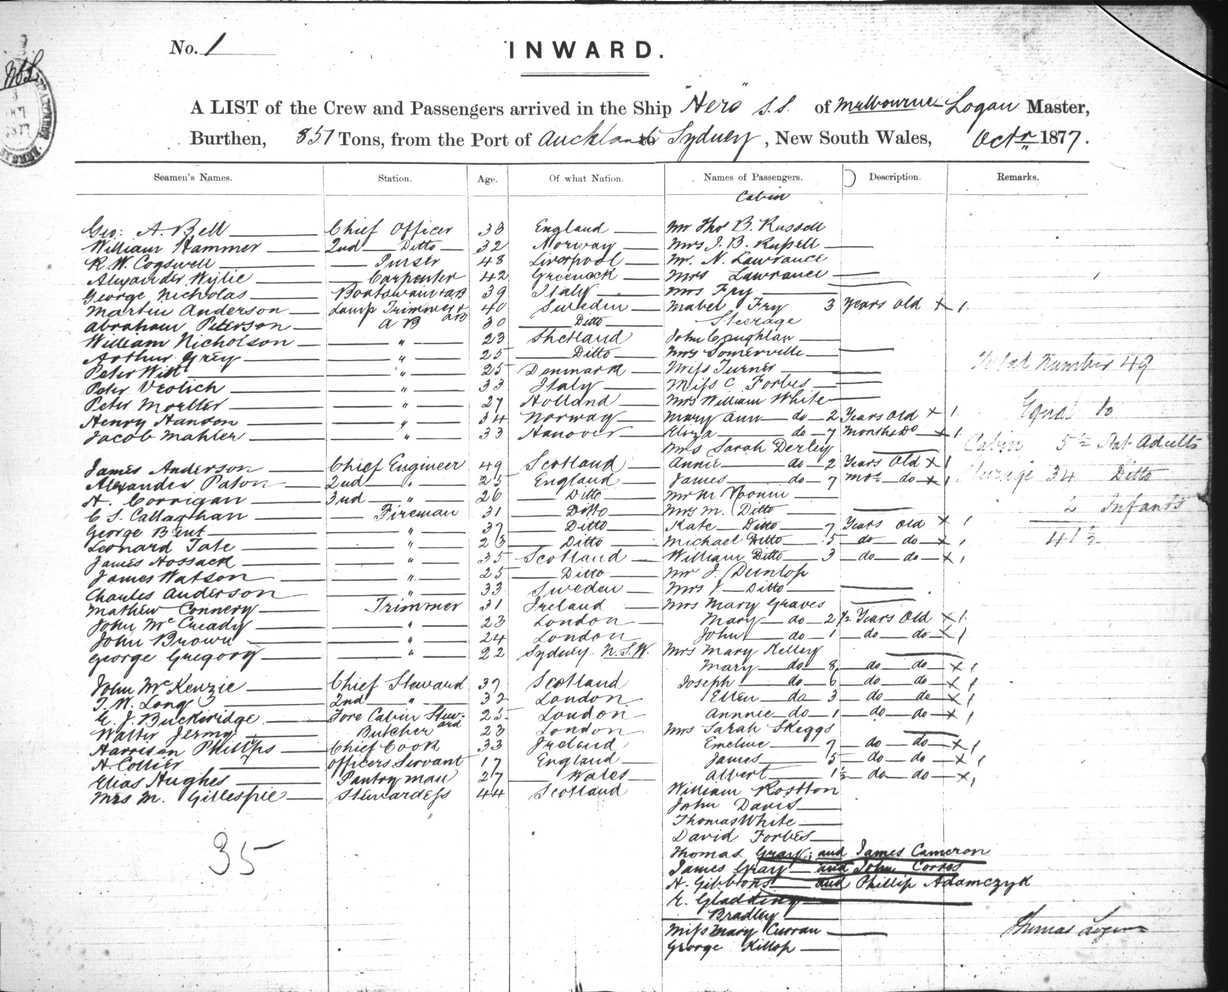 No. 1
INWARD.
A LIST of the Crew and Passengers arrived in the Ship "Hero" S.S. of Melbourne Logan Master,
Burthen, 851 Tons, from the Port of Auckland to Sydney, New South Wales, Octr 1877.
Seamen's Names. Station. Age. Of what Nation. Names of Passengers. Description. Remarks.
Cabin
Geo: A. Bell Chief Officer 33 England Mr Thos B. Russell
William Hammer 2nd Ditto 32 Norway Mrs J. B. Russell
R. W. Cogswell Purser 48 Liverpool Mr. N. Lawrance
Alexander Wylie Carpenter 42 Greenock Mrs Lawrance
George Nicholas Boatswain & AB 39 Italy Mrs Fry
Martin Anderson Lamp Trimmer & AB 40 Sweden Mabel Fry 3 Years Old x 1
Abraham Peterson A B 30 Ditto Steerage
William Nicholson " 23 Shetland John Coughlan
Arthur Grey " 25 Ditto Mrs Somerville
Peter Witt " 25 Denmark Miss Turner
Peter " 33 Italy Miss C Forbes
Peter " 27 Holland Mrs William White
Henry Hanson " 34 Norway Mary Ann do 2 Years Old x 1
Jacob Mahler " 33 Hanover Eliza do 7 Months Do x 1
Mrs Sarah Derley
James Anderson Chief Engineer 49 Scotland Annie do 2 Years Old x 1
Alexander Paton 2nd " 25 England James do 7 Mos do x 1
H. Corrigan 3rd " 26 Ditto Mr M.
C S. Callaghan Fireman 31 Ditto Mrs M. Ditto
George Bent " 37 Ditto Kate Ditto 7 Years Old x 1
Leonard Tate " 23 Ditto Michael Ditto 5 do do x 1
James Hossack " 35 Scotland William Ditto 3 do do x 1
James Watson " 25 Ditto Mr J. Dunlop
Charles Anderson " 33 Sweden Mrs J Ditto
Mathew Connery Trimmer 31 Ireland Mrs Mary Graves
John McCready " 23 London Mary do 2½ Years Old x 1
John Brown " 24 London John do 1 do do x 1
George Gregory " 22 Sydney N.S.W. Mrs Mary Kelley
Mary do 8 do do x 1
John McKenzie Chief Steward 37 Scotland Joseph do 6 do do x 1
T. W. Long 2nd " 32 London Ellen do 3 do do x 1
E. J. Buckeridge Fore Cabin Steward 25 London Annnie do 1 do do x 1
Walter Jermy Butcher 23 London Mrs Sarah Skeggs
Harrison Phillips Chief Cook 33 Ireland Emeline 7 do do x 1
A. Collier Officers Servant 17 England James 5 do do x 1
Elias Hughes Pantryman 27 Wales Albert 1½ do do x 1
Mrs M. Gillespie Stewardess 44 Scotland William Rostton
John Davis
Thomas White
David Forbes
Thomas Gray; and James Cameron
James Gray and John
A. Gibbons and Phillip Adamczyk
E. Gladding
Bradley
Miss Mary Curran
George Killop
35
Total Number 49
Equal to
Cabin 5½ Adults
Steerage 34 Ditto
2 Infants
41½
Thomas Logan